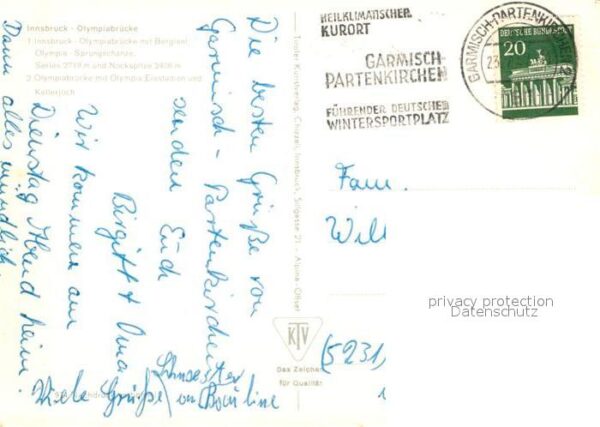 Innsbruck - Olympiabrücke
1 Innsbruck - Olympiabrücke mit Bergisel
Olympia - Sprungschanze,
Serles 2719 m und Nockspitze 2406 m
2 Olympiabrücke mit Olympia Eisstadion und
Kellerjoch
Die besten Grüße von
Garmisch - Partenkirchen
senden Euch
Birgitt + Oma
Wir kommen am
Dienstag Abend heim.
Dann alles mündlich.
Viele Grüße von
Schwester
Tiroler Kunstverlag Chizzali, Innsbruck, Sillgasse 21 - Alpina-Offset
KTV
Das Zeichen
für Qualität
HEILKLIMATISCHER
KURORT
GARMISCH-
PARTENKIRCHEN
FÜHRENDER DEUTSCHER
WINTERSPORTPLATZ
GARMISCH-PARTENKIRCHEN
23.
DEUTSCHE BUNDESPOST
20
Fam.
Will
(5231)
privacy protection
Datenschutz